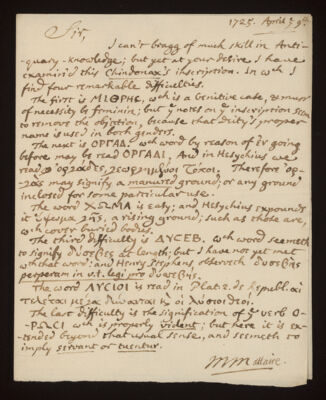 1725. April ye 9th.
Sir,
I can't bragg of much skill in Anti-
quary-knowledge; but yet at your desire I have
examin'd this Chindonax's inscription. In wch I
find four remarkable difficulties.
The first is ΜΙΘΡΗC, wch is a Genitive case, & must
of necessity be feminin; but ye notes on ye inscription seem
to remove the objection, because that deity's proper
name is used in both genders.
The next is ΟΡΓΑΔ. wch word by reason of ἐν going
before may be read ΟΡΓΑΔΙ, And in Hesychius we
read ὀργάδες, γεωργήσιμοι τόποι. Therefore ὀρ-
γὰς may signify a manured ground; or any ground
inclosed for some particular use.
The word ΧΩΜΑ is easy; and Hesychius expounds
it ὕψωμα γῆς, a rising ground; such as those are,
wch cover buried bodies.
The third difficulty is ΔΥCΕΒ. wch word seemeth
to signify δυσεβὴς at length; but I have not yet met
with that word: and Henry Stephens observeth δυσεβὴς
perperam in v.t. legi pro δυσσεβής.
The word ΛΥCΙΟΙ is read in Plat. 2. de Republ. αἱ
τελεταὶ μέγα δύνανται κ οἱ λύσιοι θεοί.
The last difficulty is the signification of ye verb Ο-
ΡΩCΙ wch is properly vident; but here it is ex-
tended beyond that usual sense, and seemeth to
imply servant or tuentur.
MMaittaire.